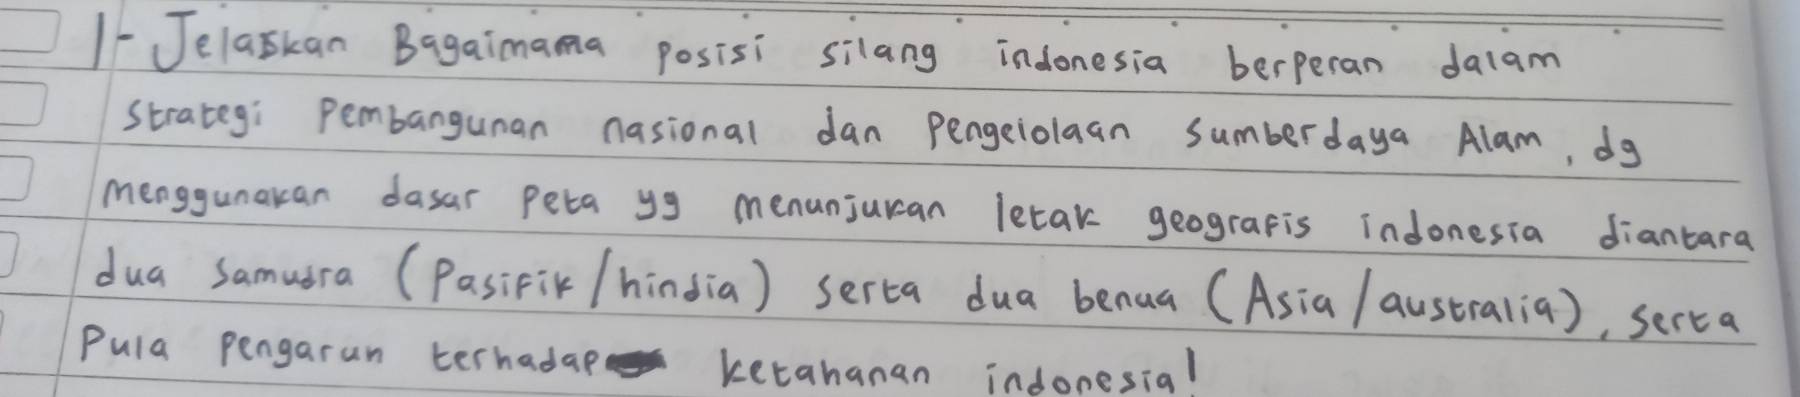 1- Jelaskan Bagaimana posisi silang indonesia berperan dalam
strategi Pembangunan nasional dan Pengelolaan sumberdaya Alam, dg
menggunakan dasar Peta yg menunjukan letak geografis indonesia diantara
dua samudra (Pasifik/hindia) serta dua benua (Asia/australia), serta
Pula pengaruh terhadap ketahanan indonesia!